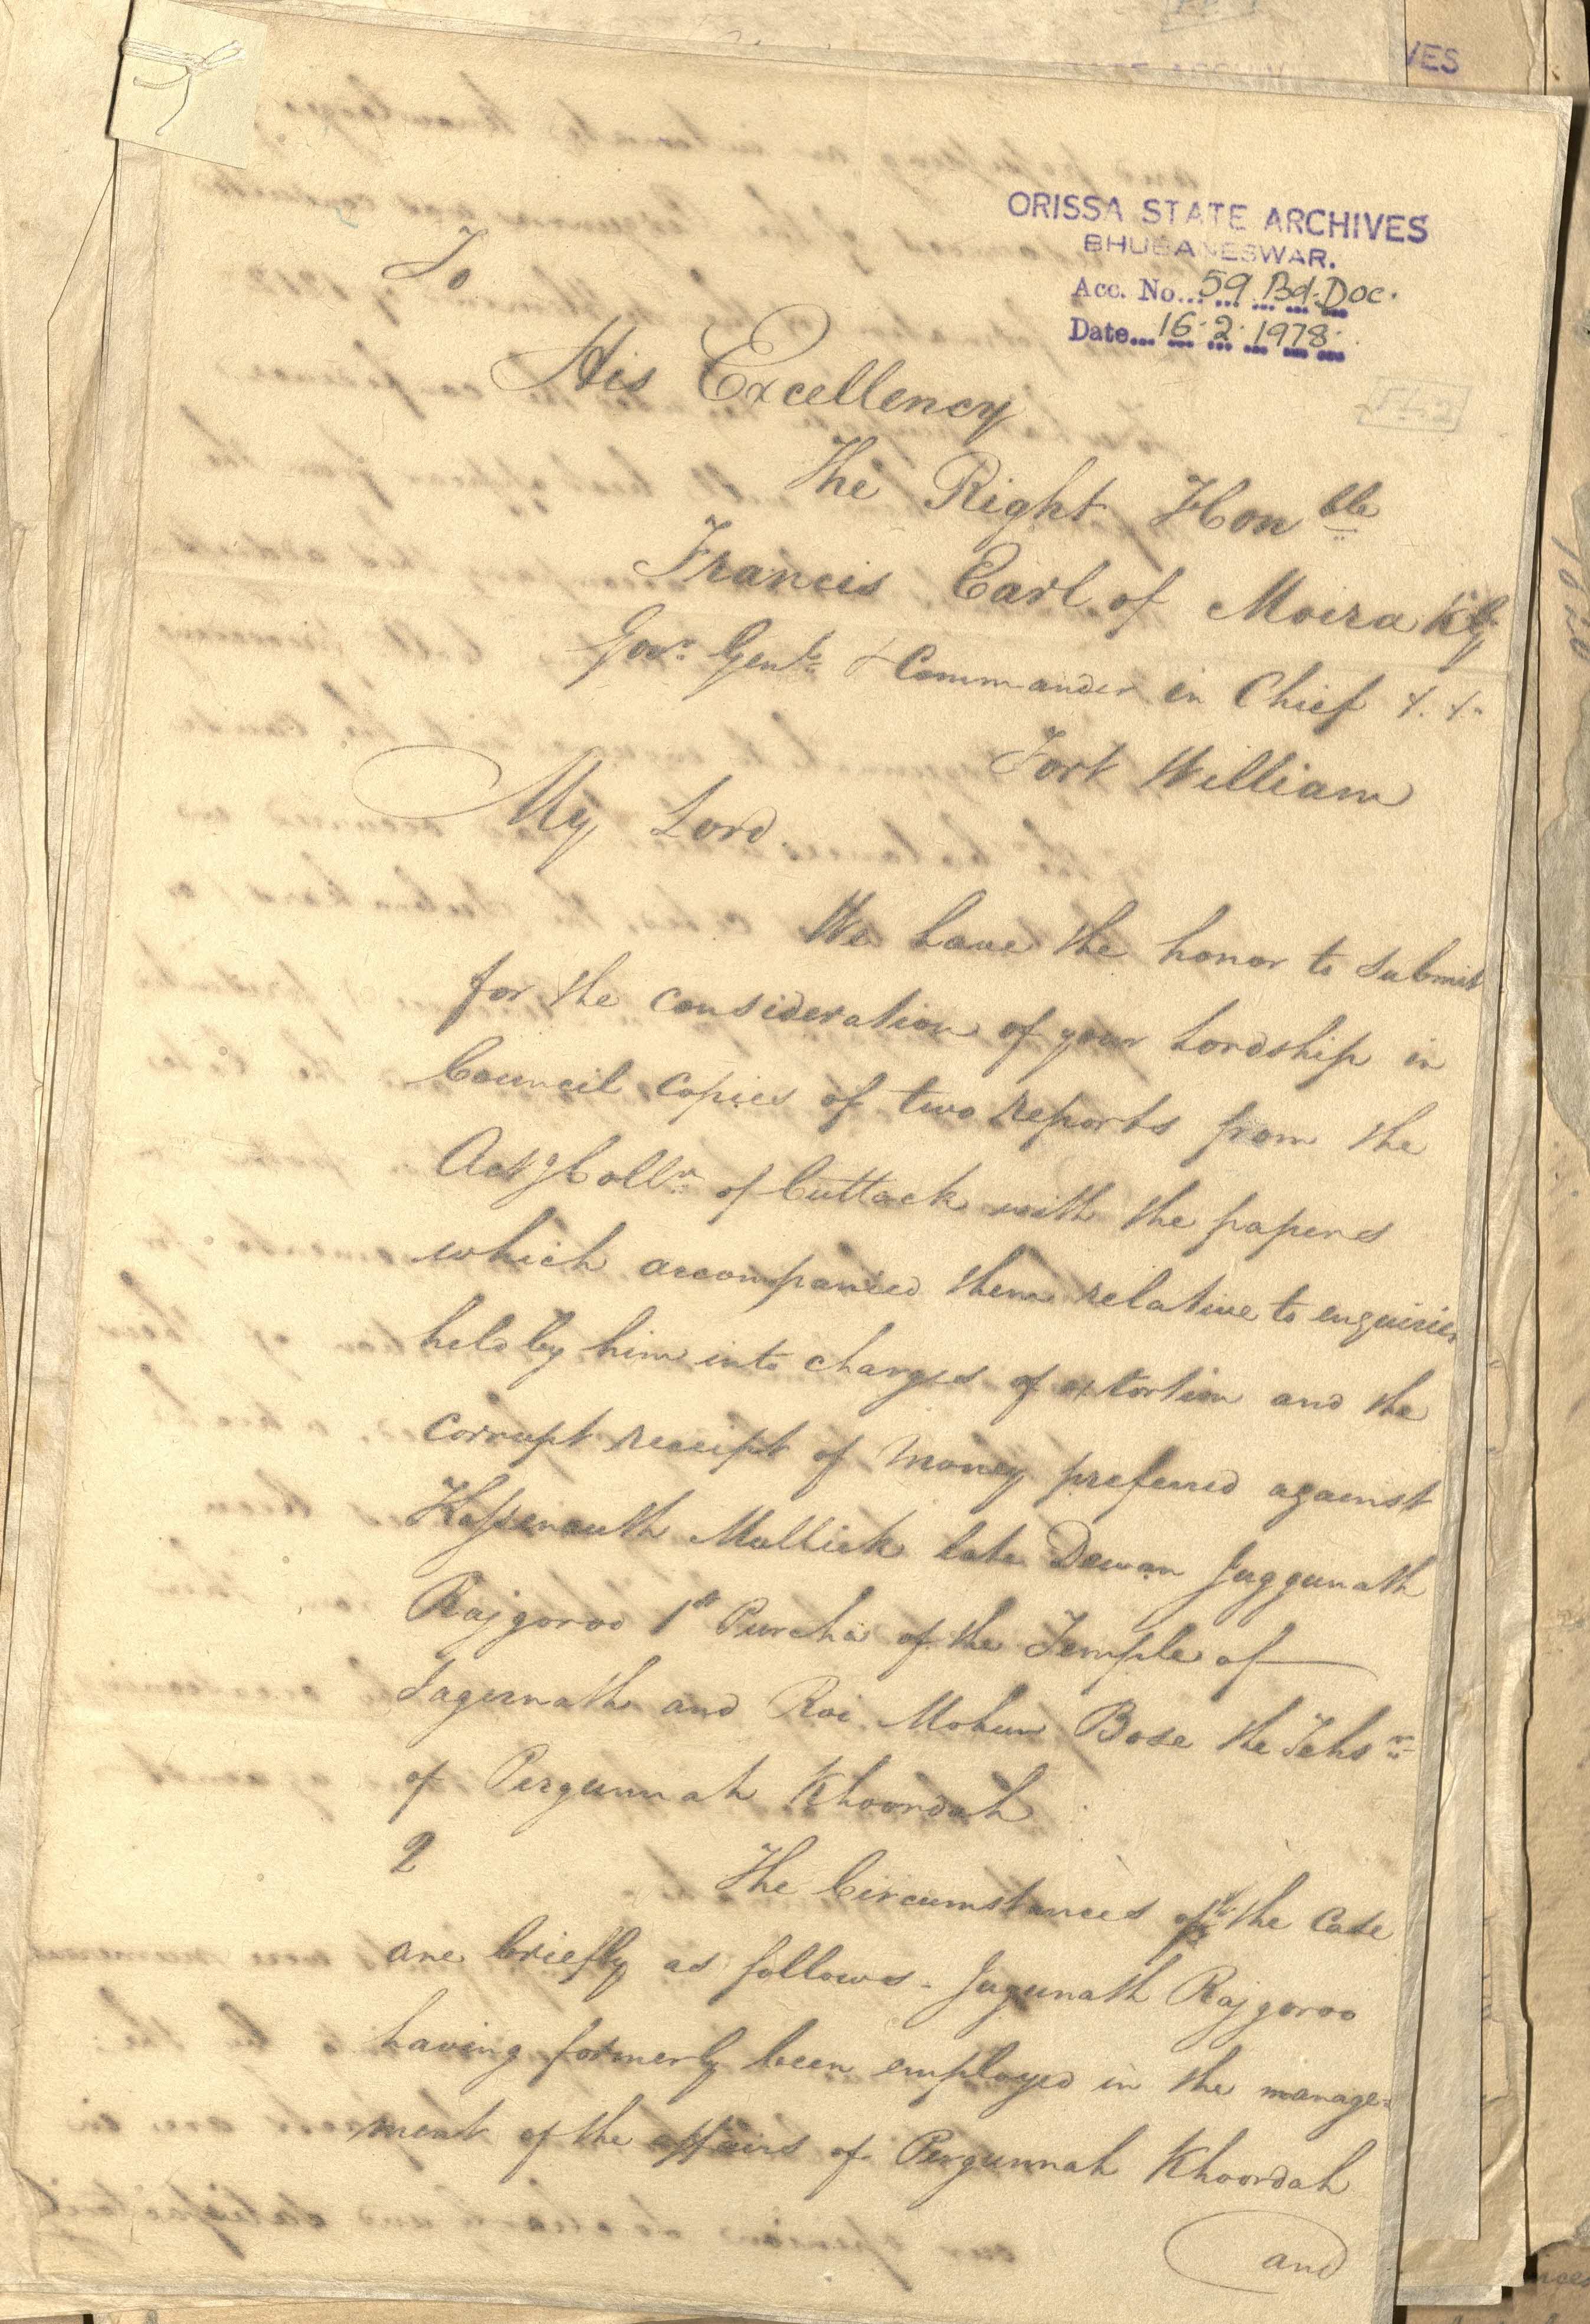 ORISSA STATE ARCHIVES
BHUBANESWAR.
Acc. No. 59 Bd. Doc.
Date 16.2.1978
To
His Excellency
The Right Honble
Francis Earl of Moira KG
Govr. Genl. & Commander in Chief &. &.
Fort William
My Lord
We have the honor to submit
for the consideration of your Lordship in
Council copies of two reports from the
Actg Collr. of Cuttack with the papers
which accompanied them relative to enquiries
held by him into charges of extortion and the
corrupt receipt of money preferred against
Kassenauth Mullick late Dewan Juggunath
Rajgoroo 1st Purcha of the Temple of
Jagernath and Roi Mohun Bose the Tehsr.
of Pergunnah Khoordah
2 The Circumstances of the Case
are briefly as follows - Jugunath Rajgoroo
having formerly been employed in the manage-
ment of the affairs of Pergunnah Khoordah
and